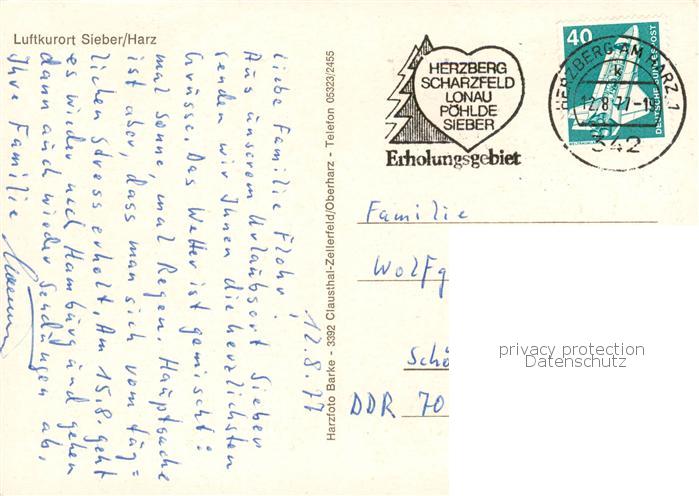 Luftkurort Sieber/Harz
12.8.77
Liebe Familie Flohr,
Aus unserem Urlaubsort Sieber
senden wir Ihnen die herzlichsten
Grüsse. Das Wetter ist gemischt:
mal Sonne, mal Regen. Hauptsache
ist aber, dass man sich vom täg=
lichen Stress erholt. Am 15.8. geht
es wieder nach Hamburg und gehen
dann auch wieder Sendungen ab.
Ihre Familie
Harzfoto Barke - 3392 Clausthal-Zellerfeld/Oberharz - Telefon 05323/2455
HERZBERG
SCHARZFELD
LONAU
PÖHLDE
SIEBER
Erholungsgebiet
40
DEUTSCHE BUNDESPOST
HERZBERG AM HARZ 1
k
12.8.77-1
342
Familie
Wolfg
Schö
DDR 70
privacy protection
Datenschutz